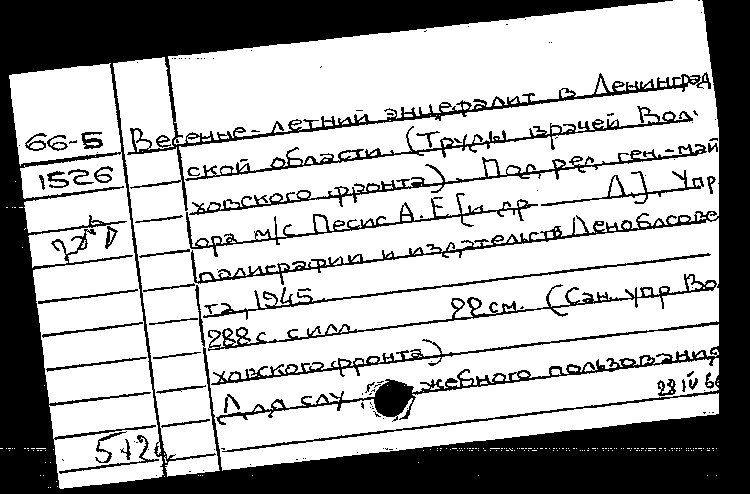 66-5 Весенне-летний энцефалит в Ленинград
1526 ской области. (Труды врачей Вол-
ховского фронта). Под ред. ген.-май
ора м/с Песис А. Е [и др Л.], Упр
полиграфии и издательств Леноблсове
та, 1945.
288 с. с илл. 22 см. (Сан. упр Во
ховского фронта).
Для служебного пользования
28 IV 66